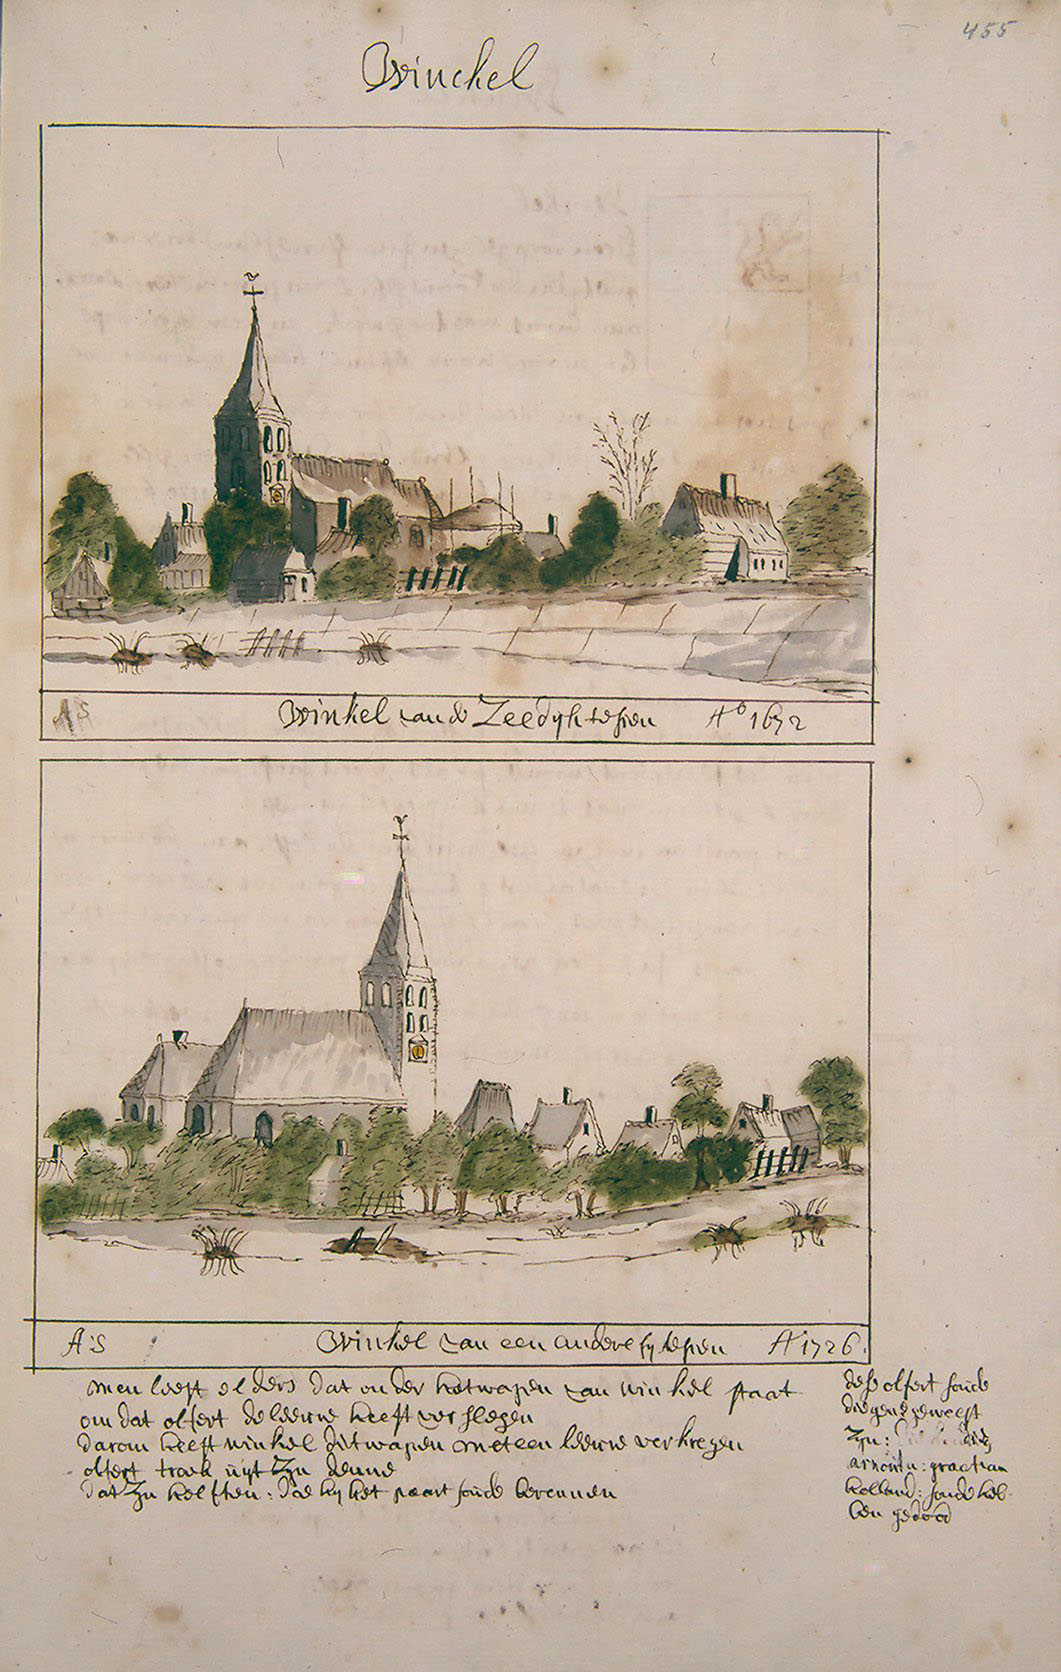 455
Winchel
AS
Winkel van de Zeedyk te sien Aº 1672
A:S Winkel van een andere sy te sien Aº 1726.
men leest elders dat onder het wapen van winkel staat
om dat olfert de leeuw heeft verslegen
darom heeft winkel dit wapen met een leeuw verkregen
olfert track uyt zyn
dat zyn helften: doe hy het paart soude berennen
dese olfert soude
diegene geweest
zyn: die
arnoutu: graef van
holland: soude heb-
ben gedood